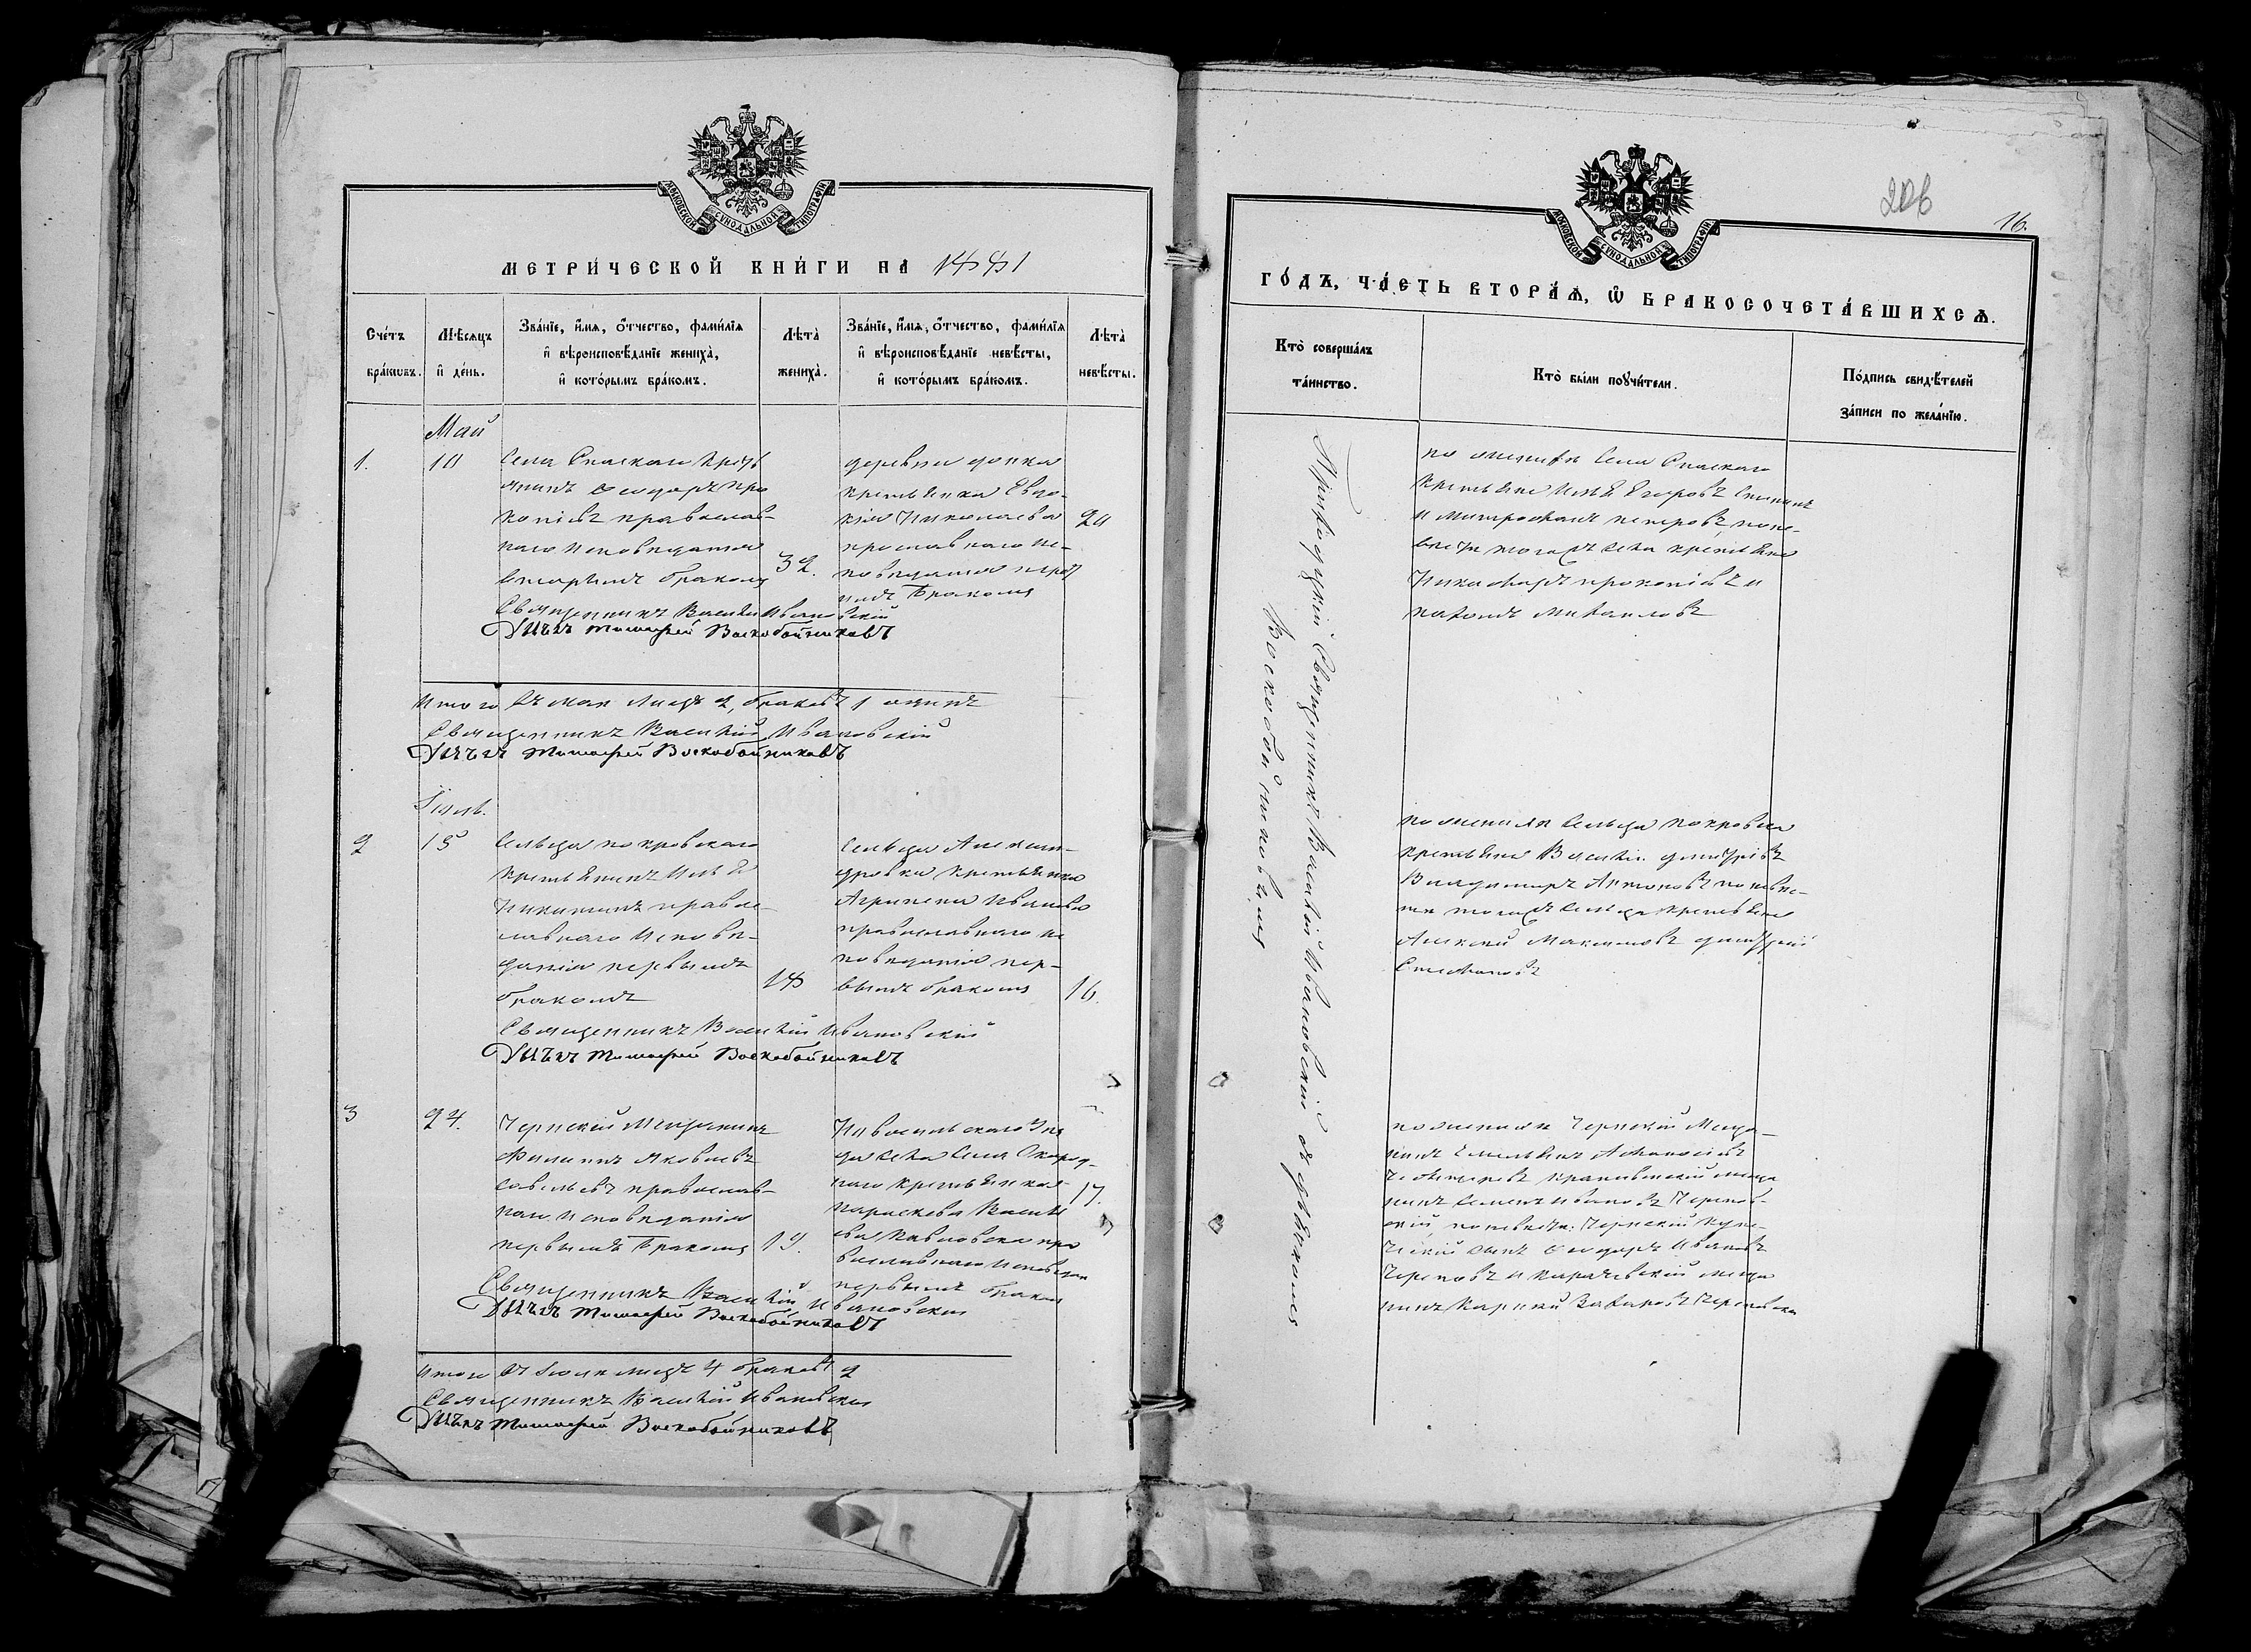 МОСКОВСКОЙ СѴНОДАЛЬНОЙ ТИПОГРАФІИ
МЕТРИ́ЧЕСКОЙ КНИ́ГИ НА̀ 1881
Сче́тъ бра́ковъ.
Мѣ́сяцъ и҆ де́нь.
Зва́нїе, и҆́мя, ѻ҆́тчество, фамі́лїя
и҆ вѣроисповѣ́данїе жениха̀,
и҆ кото́рымъ бра́комъ.
Лѣта̀ жениха̀.
Зва́нїе, и҆́мя, ѻ҆́тчество, фамі́лїя
и҆ вѣроисповѣ́данїе невѣ́сты,
и҆ кото́рымъ бра́комъ.
Лѣта̀ невѣ́сты.
Май
1.
10
Села Спаскаго Кресть
янинъ Ѳеодоръ Про
копіевъ православ-
наго исповѣданія
вторымъ бракомъ
32.
деревни
крестьянка Евдо-
кія Николаева
православнаго ис-
повѣданія перв
ымъ бракомъ
20
Священникъ Василій Ивановскій
Дьячекъ Тимофей Воскобойниковъ
Итого въ маѣ мѣсяцѣ браковъ 1 одинъ
Священникъ Василій Ивановскій
Дьячекъ Тимофей Воскобойниковъ
Іюль.
2
15
Сельца Покровскаго
крестьянинъ Илья
Никитинъ правос-
лавнаго исповѣ-
данія первымъ
бракомъ
18
Сельца Алексан-
дровки крестьянка
Агрипена Иванова
православнаго ис
повѣданія пер-
вымъ бракомъ
16.
Священникъ Василій Ивановскій
Дьячекъ Тимофей Воскобойниковъ
3
24.
Чернскій Мещанинъ
Филиппъ Яковлевъ
Савельевъ православ-
наго исповѣданія
первымъ бракомъ
19.
Новосильскаго уѣ
зда села
крестьянская
Параскева Василь
ева Павловска пра
вославнаго исповѣдан
первымъ браком
17.
Священникъ Василій Ивановскій
Дьячекъ Тимофей Воскобойниковъ
Итого въ Іюлѣ мѣсяцѣ 4 браковъ 2
Священникъ Василій Ивановскій
Дьячекъ Тимофей Воскобойниковъ
206
16.
МОСКОВСКОЙ СѴНОДАЛЬНОЙ ТИПОГРАФІИ
ГО́ДЪ, ЧА́СТЬ ВТОРА́Ѧ, Ѡ҆ БРАКОСОЧЕТА́ВШИХСѦ.
Кто̀ соверша́лъ
та́инство.
Кто̀ бы́ли поꙋчи́тели.
По́дпись свидѣ́телей
за́писи по жела́нїю.
Приходскій Священникъ Василій Ивановскій съ дьячкомъ
Воскобойниковымъ
по женихѣ Села Спаскаго
крестьяне Илья Егоровъ
и Митрофанъ Петровъ по не-
вѣстѣ тогожъ села крестьяне
Никифоръ Прокопіевъ и
Михаиловъ
по женихѣ Сельца Покровска
крестьяне Василій Димитріевъ
Владимиръ Антоновъ по невѣс-
тѣ тогожъ сельца крестьяне
Алексѣй Максимовъ Димитрій
Стефановъ
по женихѣ Чернскій Меща-
нинъ Емельянъ
меща
нинъ Семенъ Ивановъ
по невѣстѣ: Чернскій купе-
ческій сынъ Ѳеодоръ Ивановъ
и Карачевскій меща
нинъ Захаровъ